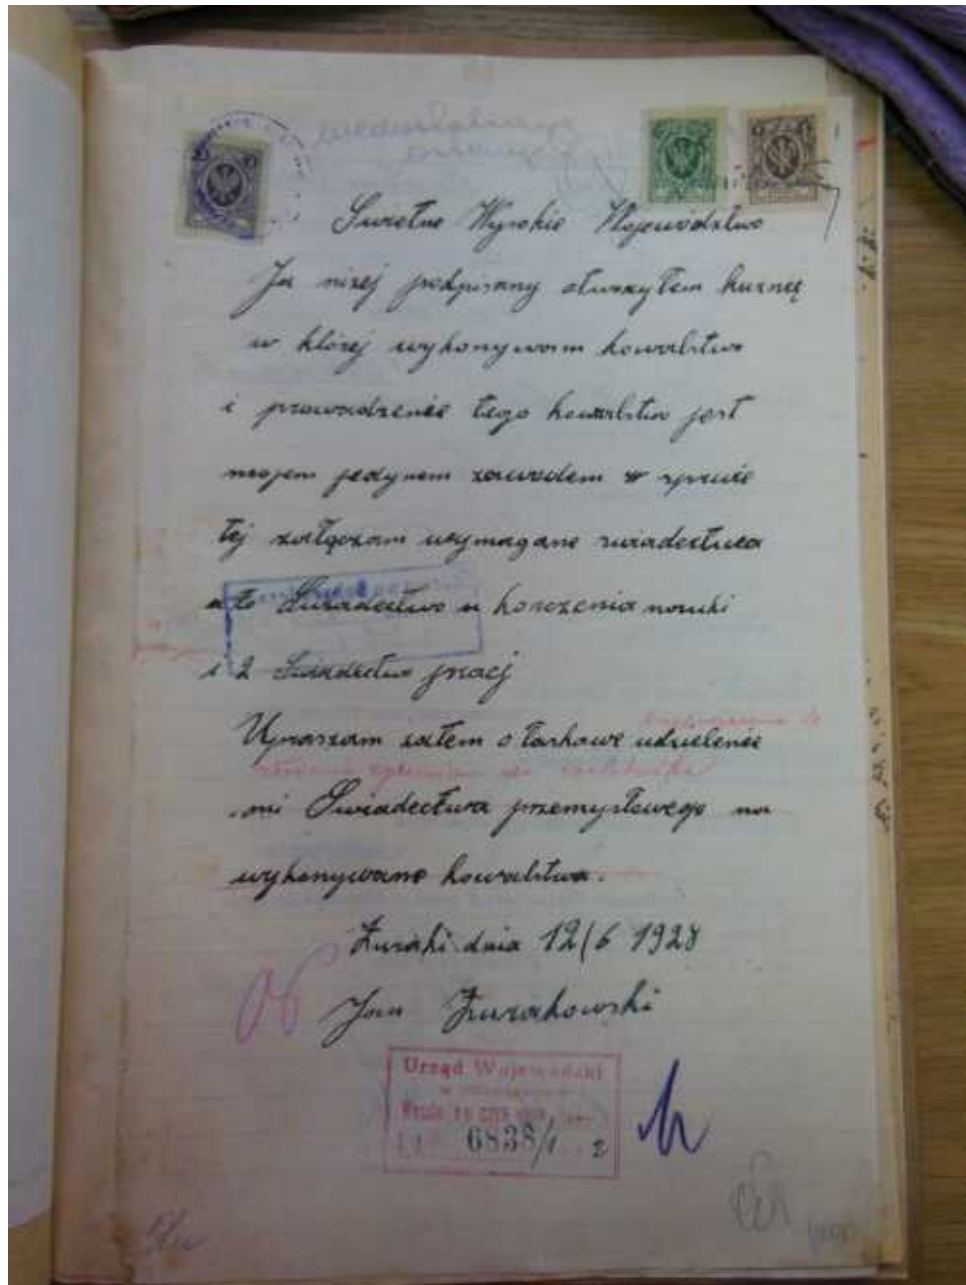 Swietne Wysokie Wojewodztwo
Ja niżej podpisany otwarzyłem kuznię
w której wykonywam kowalstwo
i prowadzenie tego kowalstwa jest
mojem jedynem zawodem w sprawie
tej załączam wymagane swiadectwa
a to Swiadectwo u konczenia nauki
i 2 Swiadectwa pracj
Upraszam zatem o łaskawe udzielenie
mi Swiadectwa przemysłowego na
wykonywane kowalstwa.
Żuraki dnia 12/6 1928
Jan Żurakowski
Urząd Wojewódzki
6838/1 2